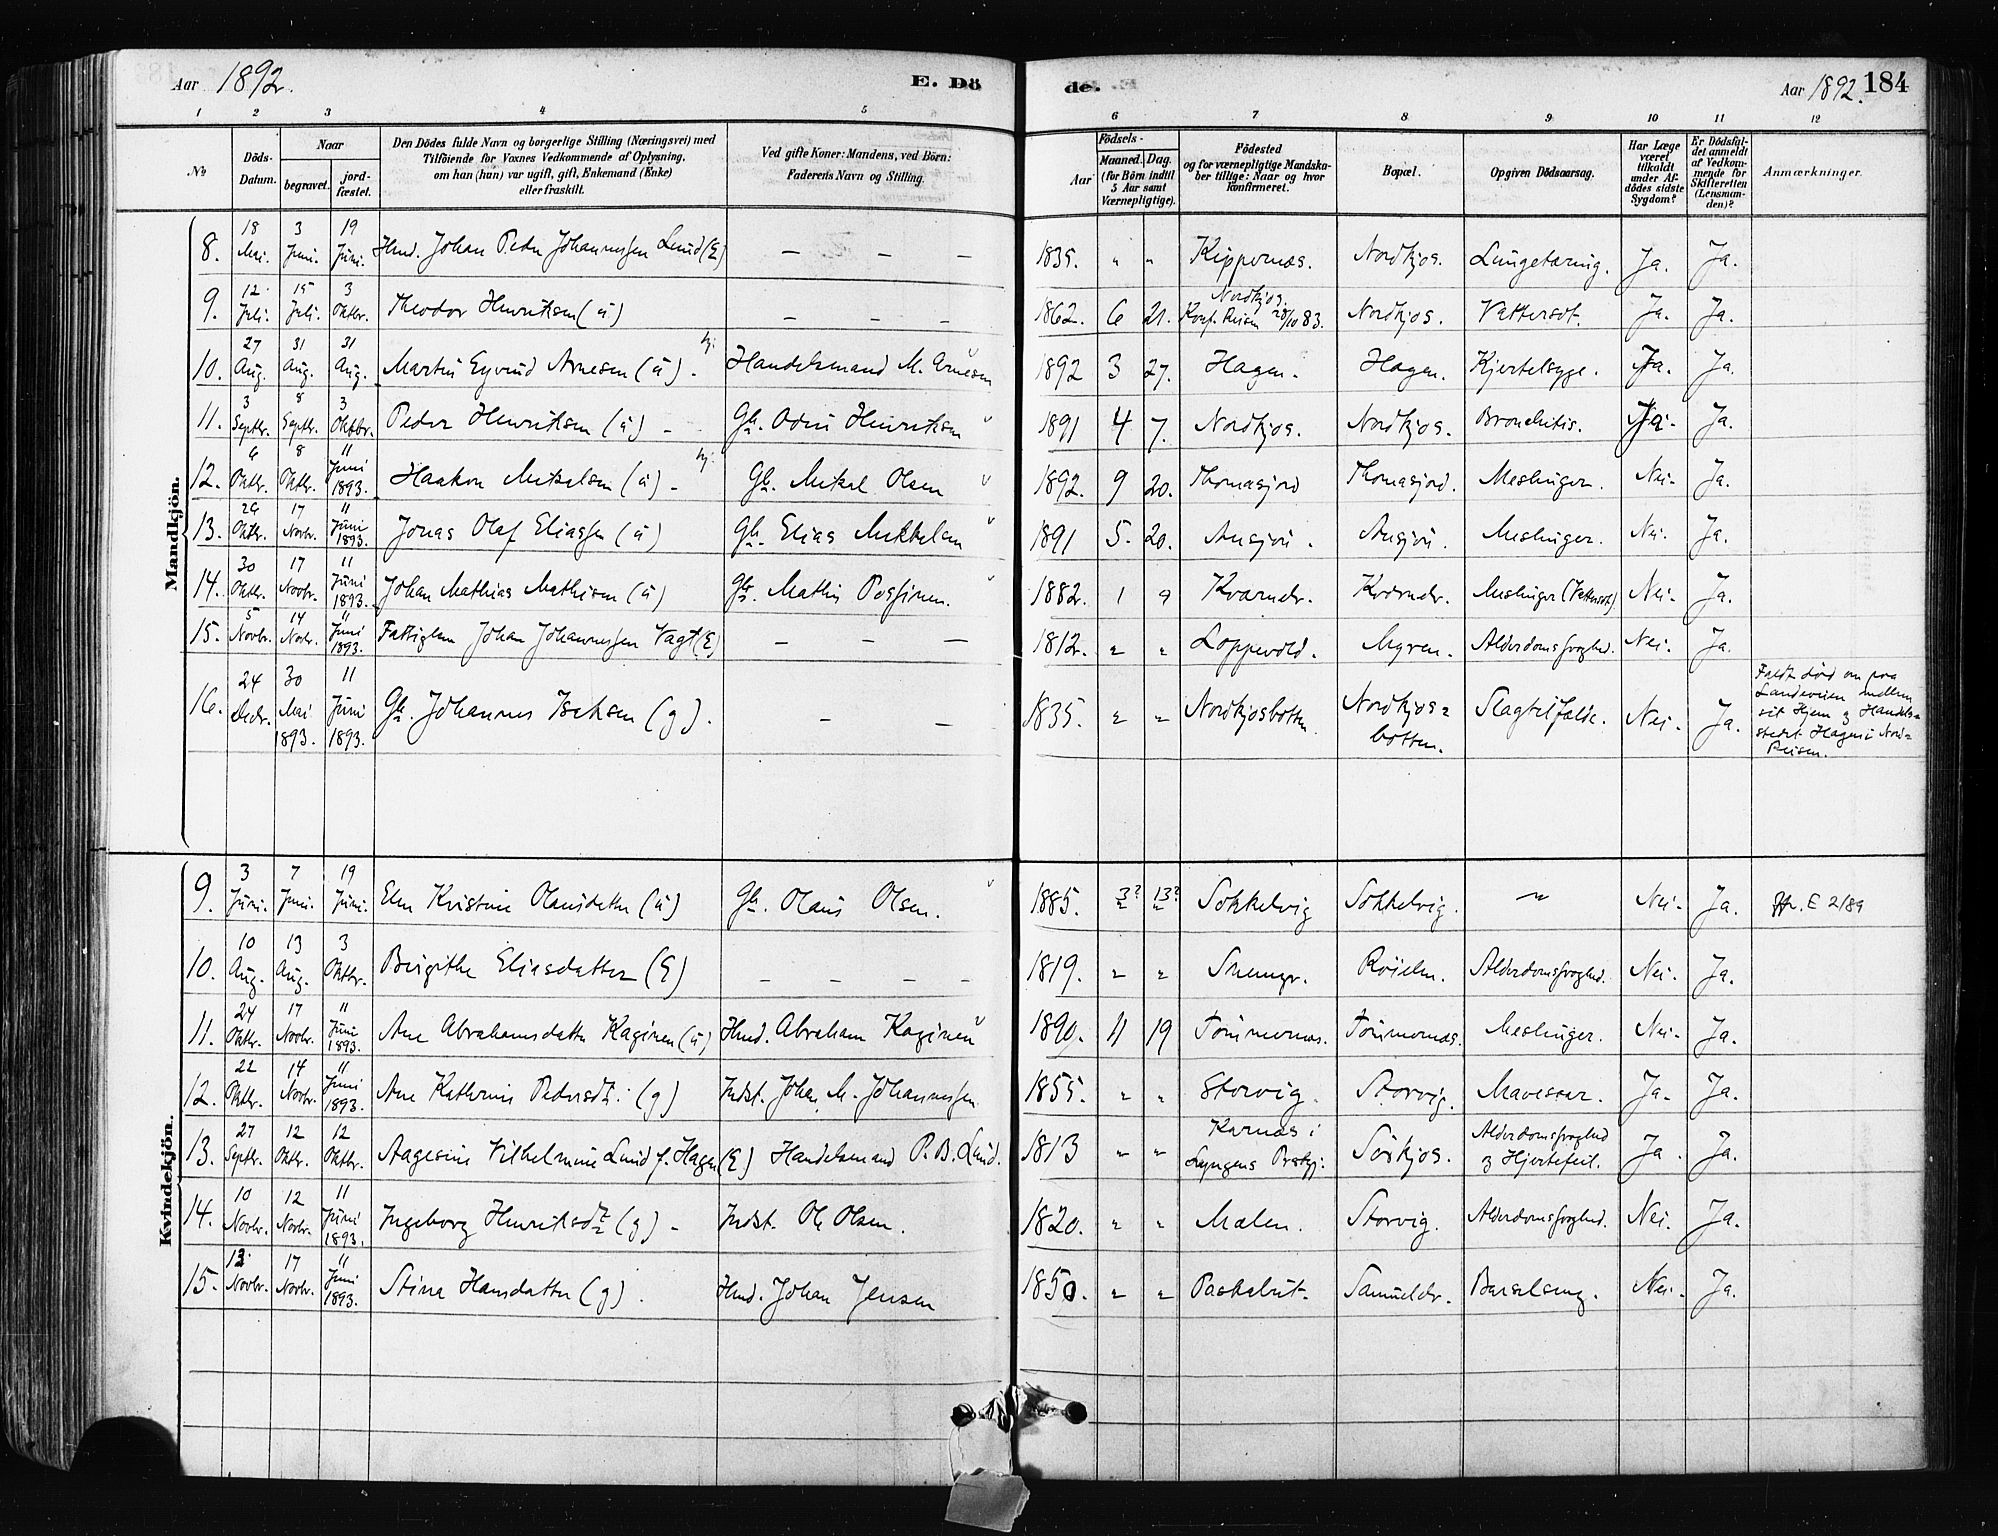 Aar 1892. E. Dö de. Aar 1892. 184
1 2 3 4 5 6 7 8 9 10 11 12
No
Döds-Datum.
Naar
begravet.
jord-fæstet.
Den Dödes fulde Navn og borgerlige Stilling (Næringsvei) med
Tilföiende for Voxnes Vedkommende af Oplysning,
om han (hun) var ugift, gift, Enkemand (Enke)
eller fraskilt.
Ved gifte Koner: Mandens, ved Börn:
Faderens Navn og Stilling.
Födsels-
Aar
Maaned. Dag.
(for Börn indtil
5 Aar samt
Værnepligtige).
Födested
og for værnepligtige Mandska-
ber tillige: Naar og hvor
konfirmeret.
Bopæl.
Opgiven Dödsaarsag.
Har Læge
været
tilkaldt
under Af-
dödes sidste
Sygdom?
Er Dödsfal-
det anmeldt
af Vedkom-
mende for
Skifteretten
(Lensman-
den)?
Anmærkninger.
Mandkjön.
8. 18 Mai. 3 Juni. 19 Juni. Hmd. Johan Peder Johannessen Lund (E) — — — 1835. " " Kippernæs. Nordkjos. Lungetæring. Ja. Ja.
9. 12 Juli. 15 Juli. 3 Oktbr. Theodor Henriksen (ú) — — — 1862. 6 21. Nordkjos. Konf. Reisen 28/10 83. Nordkjos. Vattersot. Ja. Ja.
10. 27 Aug. 31 Aug. 31 Aug. Martin Eyvind Arnesen (ú). Handelsmand M. Arnesen 1892 3 27. Hagen. Hagen. Kjertelsyge. Ja. Ja.
11. 3 Septbr. 8 Septbr. 3 Oktbr. Peder Henriksen (ú) - Gbr. Odin Henriksen 1891 4 7. Nordkjos. Nordkjos. Bronchitis. Ja. Ja.
12. 6 Oktbr. 8 Oktbr. 11 Juni 1893. Haakon Mikalsen (ú) - Gbr. Mikal Olsen 1892. 9 20. Thomasjord Thomasjord. Meslinger. Nei. Ja.
13. Oktbr. 17 Novbr. 11 Juni 1893. Jonas Olaf Eliassen (ú) Gbr. Elias Mikkelsen 1891 5. 20. Meslinger. Nei. Ja.
14. 30 Oktbr. 17 Novbr. 11 Juni 1893. Johan Mathias Mathisen (ú) Gbr. Mathis 1882. 1 9 Kværnelv. Kværnelv. Meslinger (Vattersot) Nei. Ja.
15. 5 Novbr. 14 Novbr. 11 Juni 1893. Fattiglem Johan Johannessen Vagt (E) — — — 1812. " " Loppevold. Myren. Alderdomssvaghed. Nei. Ja.
16. 24 Decbr. 30 Mai 1893. 11 Juni 1893. Gbr. Johannes Isaksen (g). — — 1835. " " Nordkjosbotten. Nordkjos=botten. Slagtilfælde. Nei. Ja.
Faldt död om paa
Landeveien mellem
sit Hjem og Handels=
stedet Hagen i Nord=
Reisen.
Kvindekjön.
9. 3 Juni. 7 Juni. 19 Juni. Elen Kristine Olausdatter (ú) Gbr. Olaus Olsen. 1885. 3? 13? Sokkelvig Sokkelvig. " Nei. Ja. Jfr. E 2/89
10. 10 Aug. 13 Aug. 3 Oktbr. Birgithe Eliasdatter (E) — — — — 1819. " " Röielen. Alderdomssvaghed. Nei. Ja.
11. 24 Oktbr. 17 Novbr. 11 Juni 1893. Ane Abrahamsdatter Kaginen (ú) Hmd. Abraham Kaginen 1890. 11 19 Tömmernæs. Tömmernæs. Meslinger. Nei. Ja.
12. 22 Oktbr. 14 Novbr. 11 Juni 1893. Ane Kathrine Pedersdt. (g) Indst. Johan M. Johannessen 1855. " " Storvig. Storvig. Mavesaar. Ja. Ja.
13. 27 Septbr. 12 Oktbr. 12 Oktbr. Aagesine Vilhelmine Lund f. Hagen (E) Handelsmand P. B. Lund. 1813 " " Karnæs i Lyngens Prstgj. Sörkjos. Alderdomssvaghed og Hjertefeil. Ja. Ja.
14. 10 Novbr. 12 Novbr. 11 Juni 1893. Ingeborg Henriksdtr (g) - Indst. Ole Olsen. 1820. " " Mælen. Storvig. Alderdomssvaghed. Nei. Ja.
15. 13 Novbr. 17 Novbr. 11 Juni 1893. Stina Hansdatter (g). Hmd. Johan Jensen 1850. " " Samuelelv. Barselseng. Nei. Ja.